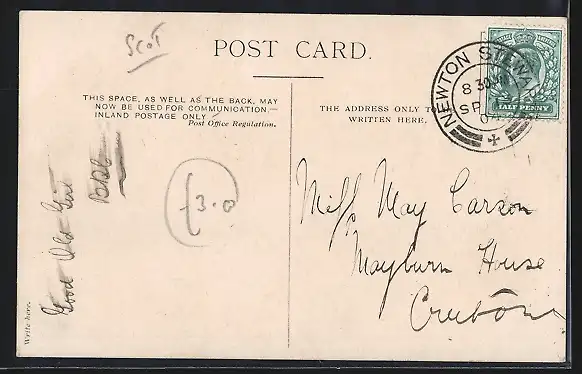 Scot
POST CARD.
THIS SPACE, AS WELL AS THE BACK, MAY
NOW BE USED FOR COMMUNICATION,—
INLAND POSTAGE ONLY
Post Office Regulation.
THE ADDRESS ONLY TO
WRITTEN HERE.
NEWTON STEWA
8 30
SP
HALF PENNY
£3.0
Miss May Carson
Mayburn House
Write here.
Good Old Girl